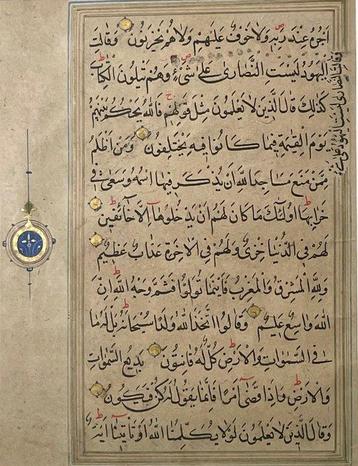 اَجْرُهُ عِنْدَ رَبِّهِ وَلَا خَوْفٌ عَلَيْهِمْ وَلَا هُمْ يَحْزَنُونَ وَقَالَتِ
الْيَهُودُ لَيْسَتِ النَّصَارَى عَلَى شَيْءٍ وَهُمْ يَتْلُونَ الْكِتَابَ
كَذَلِكَ قَالَ الَّذِينَ لَا يَعْلَمُونَ مِثْلَ قَوْلِهِمْ فَاللَّهُ يَحْكُمُ بَيْنَهُمْ
يَوْمَ الْقِيٰمَةِ فِيمَا كَانُوا فِيهِ يَخْتَلِفُونَ وَمَنْ اَظْلَمُ
مِمَّنْ مَنَعَ مَسَاجِدَ اللَّهِ اَنْ يُذْكَرَ فِيهَا اسْمُهُ وَسَعَى فِي
خَرَابِهَا اُولٰئِكَ مَا كَانَ لَهُمْ اَنْ يَدْخُلُوهَا اِلَّا خَائِفِينَ
لَهُمْ فِي الدُّنْيَا خِزْيٌ وَلَهُمْ فِي الْاٰخِرَةِ عَذَابٌ عَظِيمٌ
وَلِلَّهِ الْمَشْرِقُ وَالْمَغْرِبُ فَاَيْنَمَا تُوَلُّوا فَثَمَّ وَجْهُ اللَّهِ اِنَّ
اللَّهَ وَاسِعٌ عَلِيمٌ وَقَالُوا اتَّخَذَ اللَّهُ وَلَدًا سُبْحَانَهُ بَلْ لَهُ مَا
فِي السَّمٰوَاتِ وَالْاَرْضِ كُلٌّ لَهُ قَانِتُونَ بَدِيعُ السَّمٰوَاتِ
وَالْاَرْضِ وَاِذَا قَضَى اَمْرًا فَاِنَّمَا يَقُولُ لَهُ كُنْ فَيَكُونُ
وَقَالَ الَّذِينَ لَا يَعْلَمُونَ لَوْلَا يُكَلِّمُنَا اللَّهُ اَوْ تَأْتِينَا اٰيَةٌ
وَقَالَتِ النَّصَارَى لَيْسَتِ الْيَهُودُ عَلَى شَيْءٍ